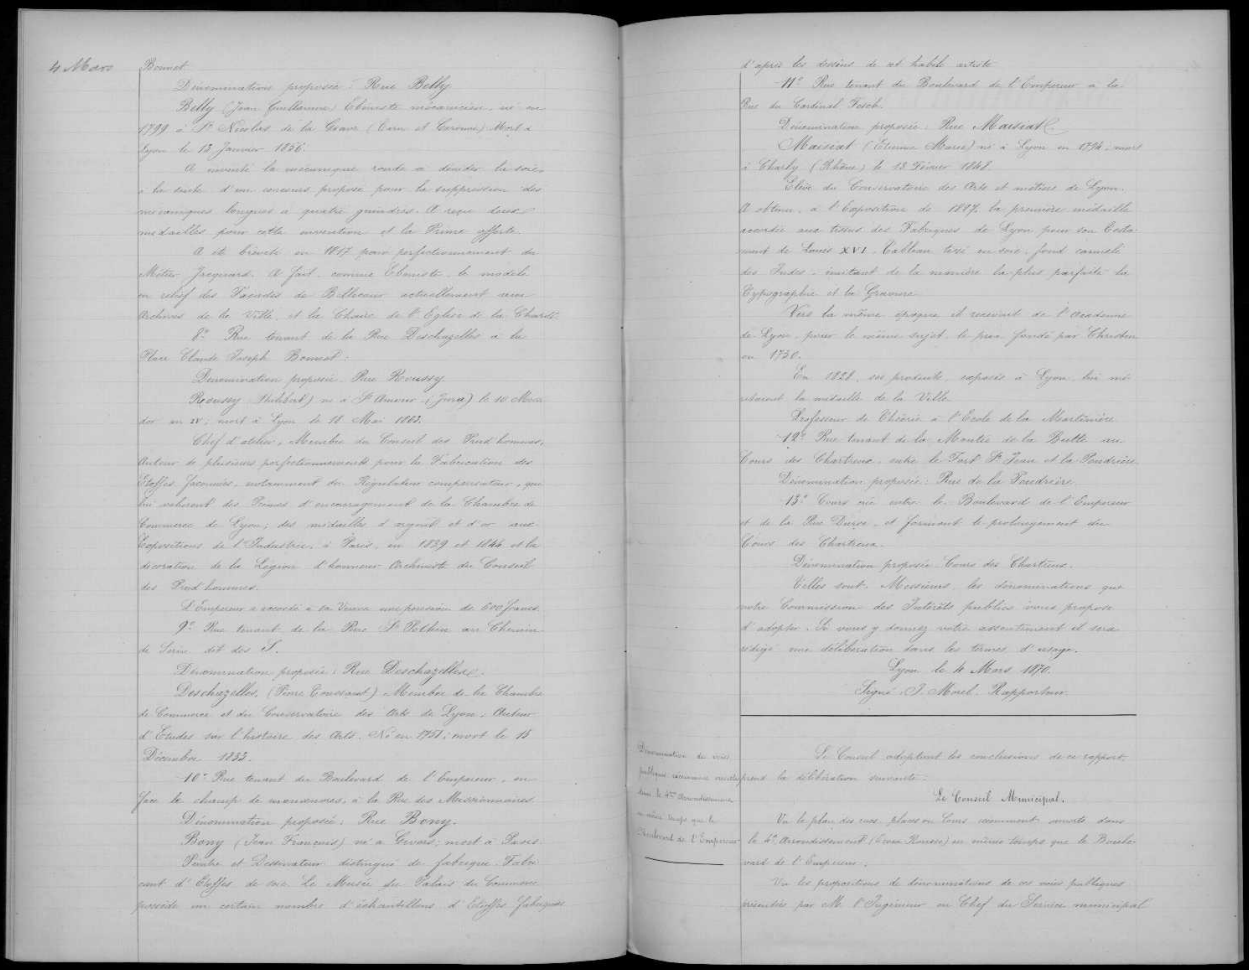 4 Mars
Bonnet
Dénomination proposée : Rue Belly
Belly (Jean Guillaume) Ebéniste mécanicien, né en
1799 à St Nicolas de la Grave (Tarn et Garonne) Mort à
Lyon le 13 Janvier 1856.
A inventé la mécanique ronde à dévider la soie,
à la suite d'un concours proposé pour la suppression des
mécaniques longues à quatre guindres. A reçu deux
médailles pour cette invention et la Prime offerte.
A été breveté en 1817 pour perfectionnement du
Métier Jacquard. A fait, comme Ebéniste, le modèle
en relief des Façades de Bellecour actuellement aux
Archives de la Ville, et la Chaire de l'Eglise de la Charité.
8° Rue tenant de la Rue Deschazelles à la
Place Claude Joseph Bonnet :
Dénomination proposée. Rue Roussy
Roussy Philibert) né à St Amour (Jura) le 10
an IV; mort à Lyon le 18 Mai 1863.
Chef d'atelier, Membre du Conseil des Prud'hommes,
Auteur de plusieurs perfectionnements pour la Fabrication des
Etoffes façonnées, notamment du Régulateur compensateur, qui
lui valurent des Primes d'encouragement de la Chambre de
Commerce de Lyon; des médailles d'argent et d'or aux
Expositions de l'Industrie, à Paris, en 1839 et 1844 et la
décoration de la Légion d'honneur Archiviste du Conseil
des Prud'hommes.
L'Empereur a accordé à sa Veuve une pension de 600 francs.
9° Rue tenant de la Rue St Pothin au Chemin
de Serin dit des S.
Dénomination proposée : Rue Deschazelles.
Deschazelles, (Pierre Toussaint) Membre de la Chambre
de Commerce et du Conservatoire des Arts de Lyon, Auteur
d'Etudes sur l'histoire des Arts. Né en 1751; mort le 15
Décembre 1833.
10° Rue tenant du Boulevard de l'Empereur, en
face le champ de manœuvres, à la Rue des Missionnaires.
Dénomination proposée : Rue Bony.
Bony (Jean François) né à Givors; mort à Paris
Peintre et Dessinateur distingué de fabrique. Fabri-
cant d'Etoffes de soie. Le Musée du Palais du Commerce
possède un certain nombre d'échantillons d'Etoffes fabriquées
d'après les dessins de cet habile artiste
11° Rue tenant du Boulevard de l'Empereur à la
Rue du Cardinal Fesch.
Dénomination proposée : Rue Maisiat.
Maisiat (Etienne Marie) né à Lyon en 1794, mort
à Charly (Rhône) le 13 Février 1848.
Elève du Conservatoire des Arts et métiers de Lyon.
A obtenu, à l'Exposition de 1827, la première médaille
accordée aux tissus des Fabriques de Lyon pour son Testa-
ment de Louis XVI. Tableau tissé en soie, fond cannelé
des Indes, imitant de la manière la plus parfaite la
Typographie et la Gravure.
Vers la même époque il recevait de l'Académie
de Lyon, pour le même sujet, le prix fondé par Christin
en 1750.
En 1828, ses produits, exposés à Lyon, lui mé-
ritaient la médaille de la Ville.
Professeur de Théorie à l'Ecole de la Martinière
12° Rue tenant de la Montée de la Butte au
Cours des Chartreux, entre le Fort St Jean et la Poudrière
Dénomination proposée : Rue de la Poudrière.
13° Cours née entre le Boulevard de l'Empereur
et de la Rue, et formant le prolongement du
Cours des Chartreux.
Dénomination proposée : Cours des Chartreux.
Telles sont, Messieurs, les dénominations que
votre Commission des Intérêts publics vous propose
d'adopter. Si vous y donnez votre assentiment il sera
rédigé une délibération dans les termes d'usage.
Lyon le 4 Mars 1870.
Signé : J. Morel. Rapporteur.
Dénomination de voies
publiques récemment
dans le 4me Arrondissement
en même temps que le
Boulevard de l'Empereur
Le Conseil adoptant les conclusions de ce rapport,
prend la délibération suivante :
Le Conseil Municipal,
Vu le plan des rues, places ou Cours récemment ouverts dans
le 4e Arrondissement (Croix Rousse) en même temps que le Boule-
vard de l'Empereur;
Vu les propositions de dénominations de ces voies publiques
présentées par M. l'Ingénieur en Chef du Service municipal